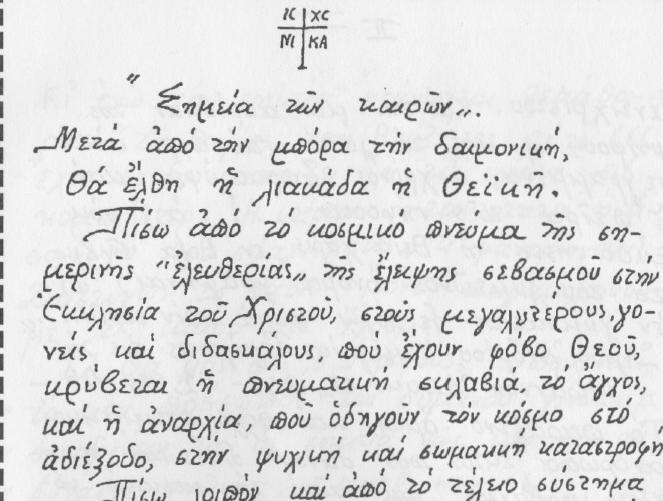 IC XC
NI KA
" Σημεία τῶν καιρῶν„.
Μετά ἀπό τήν μπόρα τήν δαιμονική,
Θα ἔλθη ἡ λιακάδα ἡ Θεϊκή.
Πίσω ἀπό το κοσμικό πνεῦμα τῆς ση-
μερινῆς "ἐλευθερίας„ τῆς ἔλειψης σεβασμοῦ στήν
Ἐκκλησία τοῦ Χριστοῦ, στούς μεγαλυτέρους, γο-
νεῖς καί διδασκάλους, που ἔχουν φόβο Θεοῦ,
κρύβεται ἡ πνευματική σκλαβιά, τό ἄγχος,
καί ἡ ἀναρχία, που οδηγοῦν τόν κόσμο στό
ἀδιέξοδο, στήν ψυχική καί σωματική καταστροφή
Πίσω λοιπόν καί ἀπό τό τέλειο σύστημα